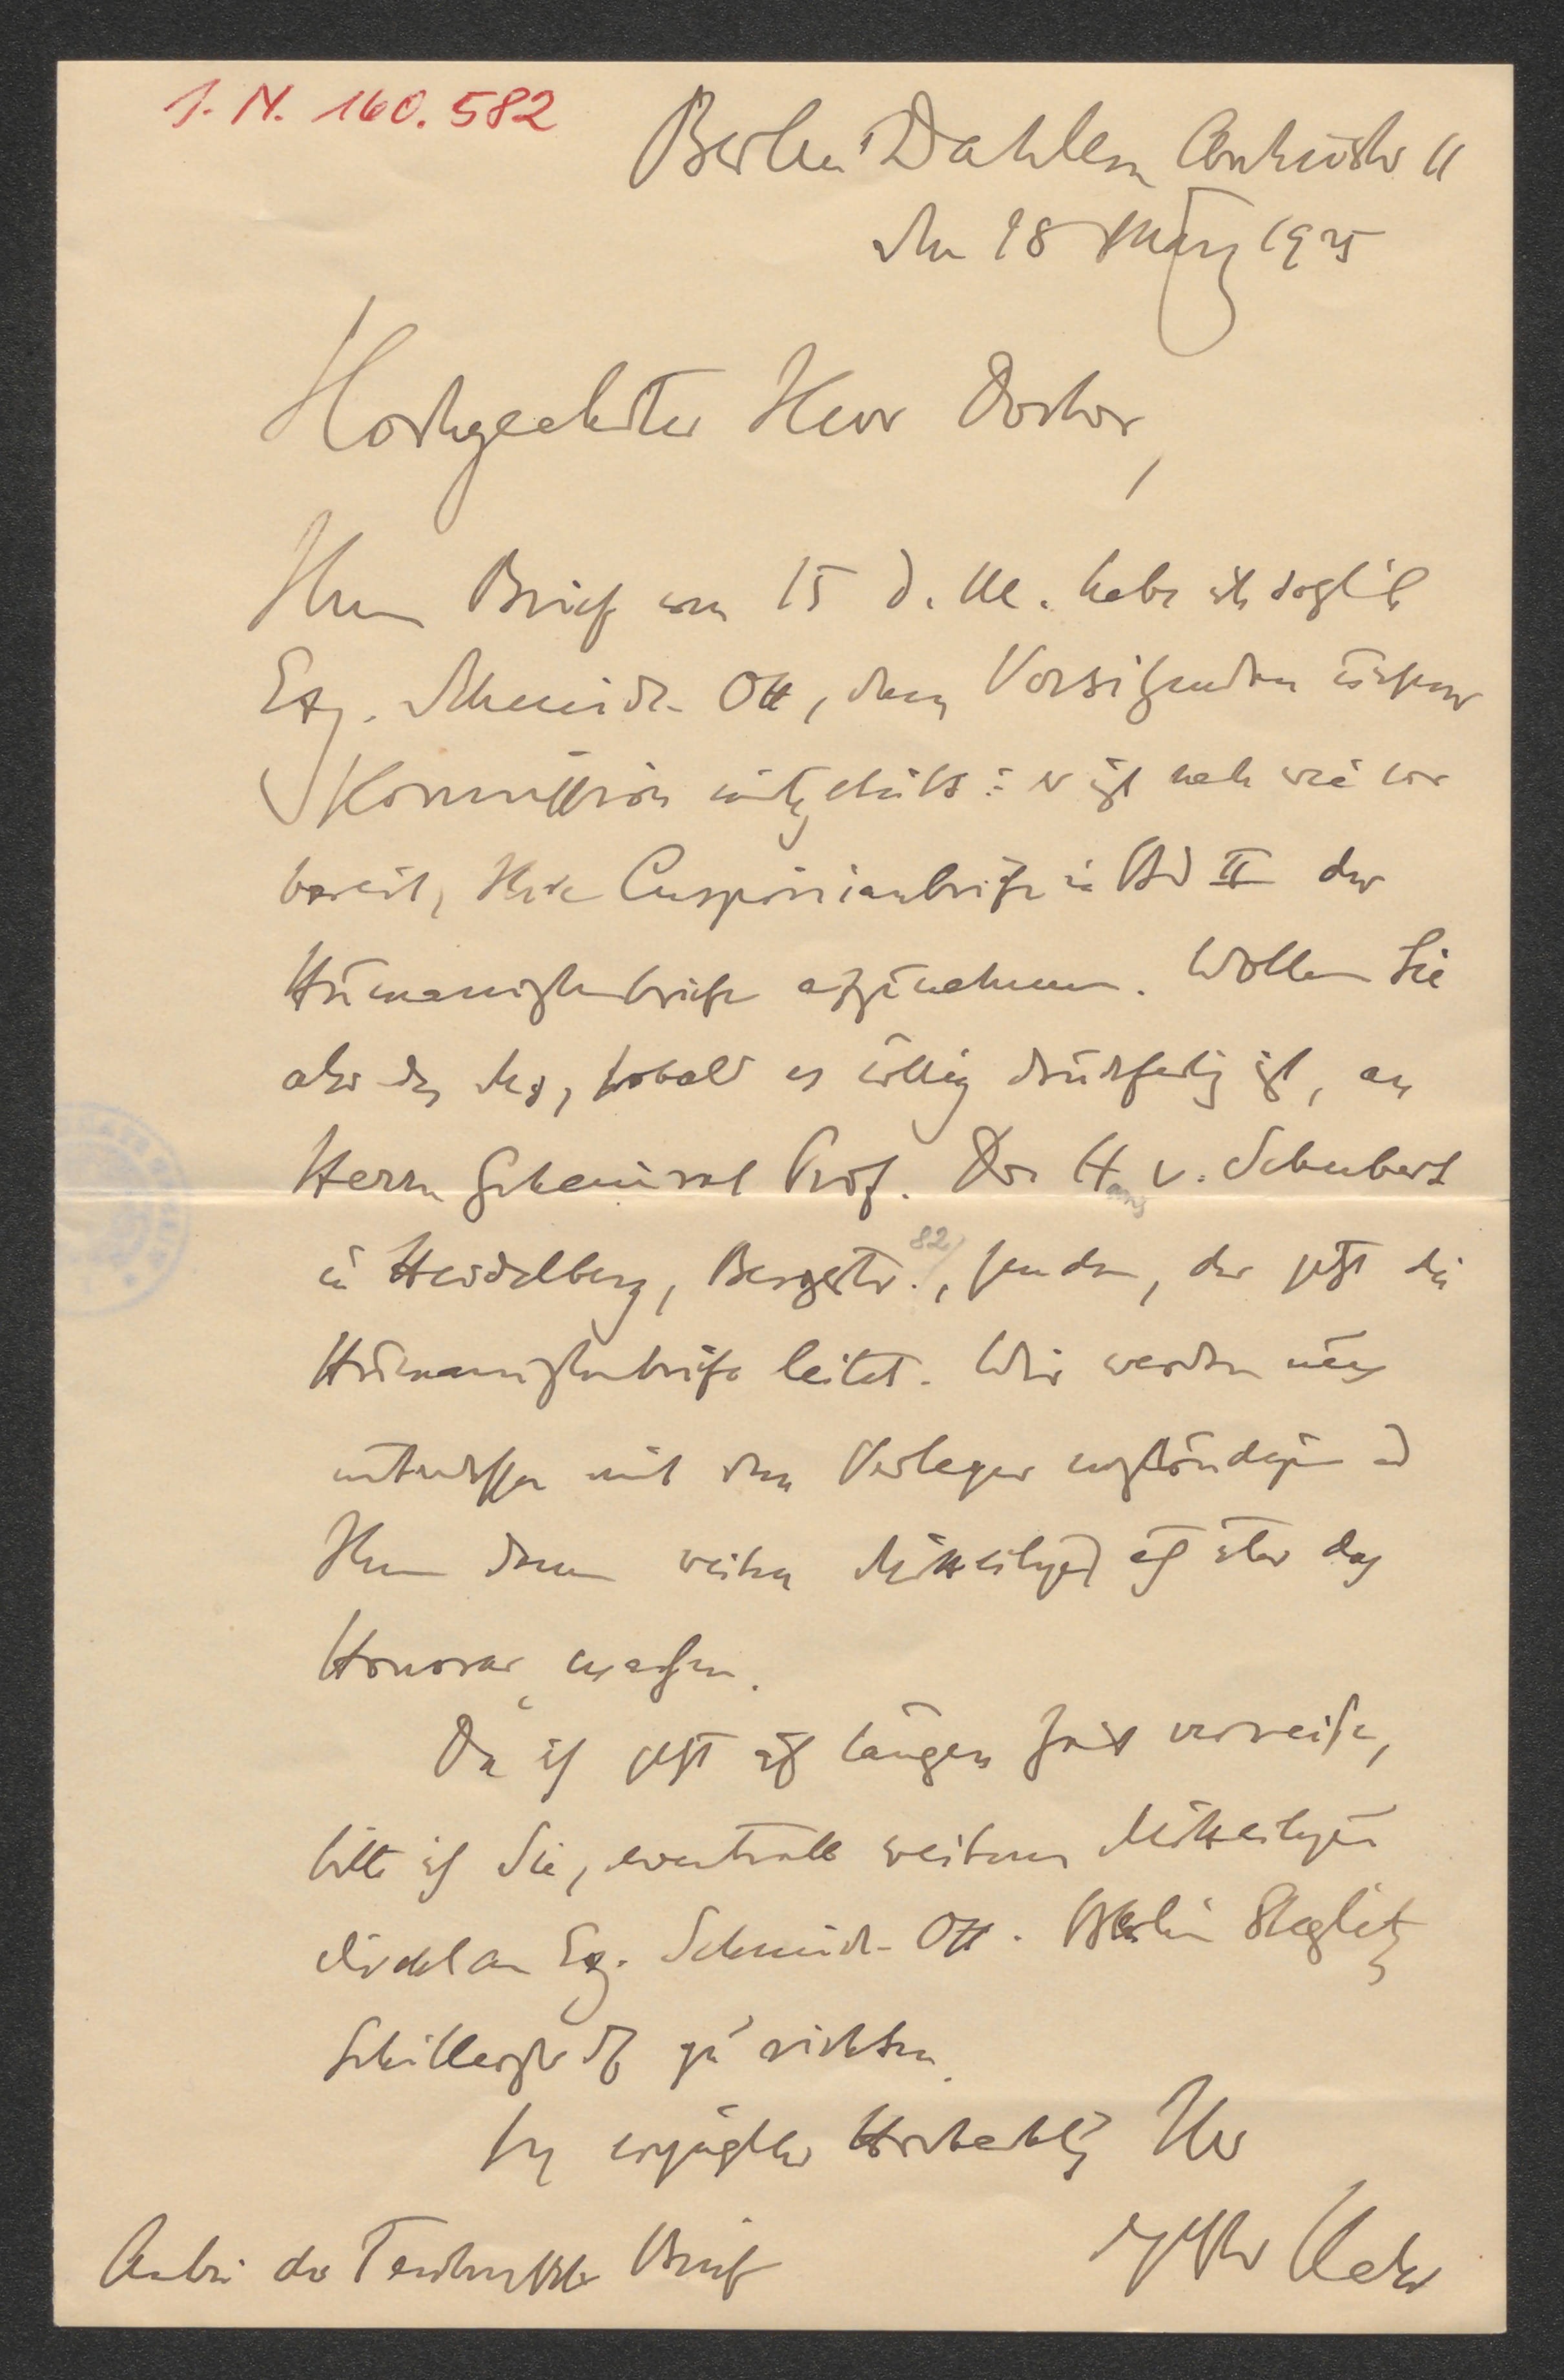 J. N. 160.582
Berlin Dahlem Archivstr 11
den 18 März 1925
Hochgeehrter Herr Doctor,
Ihren Brief vom 15 d. M. habe ich sogleich
Exz. Schmidt-Ott, dem Vorsitzenden unserer
Kommission mitgetheilt: er ist nach wie vor
bereit, Ihre Cuspinianbriefe in Bd II der
Humanistenbriefe aufzunehmen. Wollen Sie
also das Ms, sobald es völlig druckfertig ist, an
Herrn Geheimrat Prof. Dr Hans v. Schubert
in Heidelberg, Bergstr. 82, senden, der jetzt die
Humanistenbriefe leitet. Wir werden uns
mit dem Verleger verständigen und
Ihnen dann weitere Mitteilung auch über das
Honorar machen.
Da ich jetzt auf längere Zeit verreise,
bitte ich Sie, eventuelle weitere Mitteilungen
direkt an Exz. Schmidt-Ott. Berlin Steglitz
Schillerstr zu richten.
In vorzüglicher Hochachtung Ihr
Kehr
Anbei der Brief